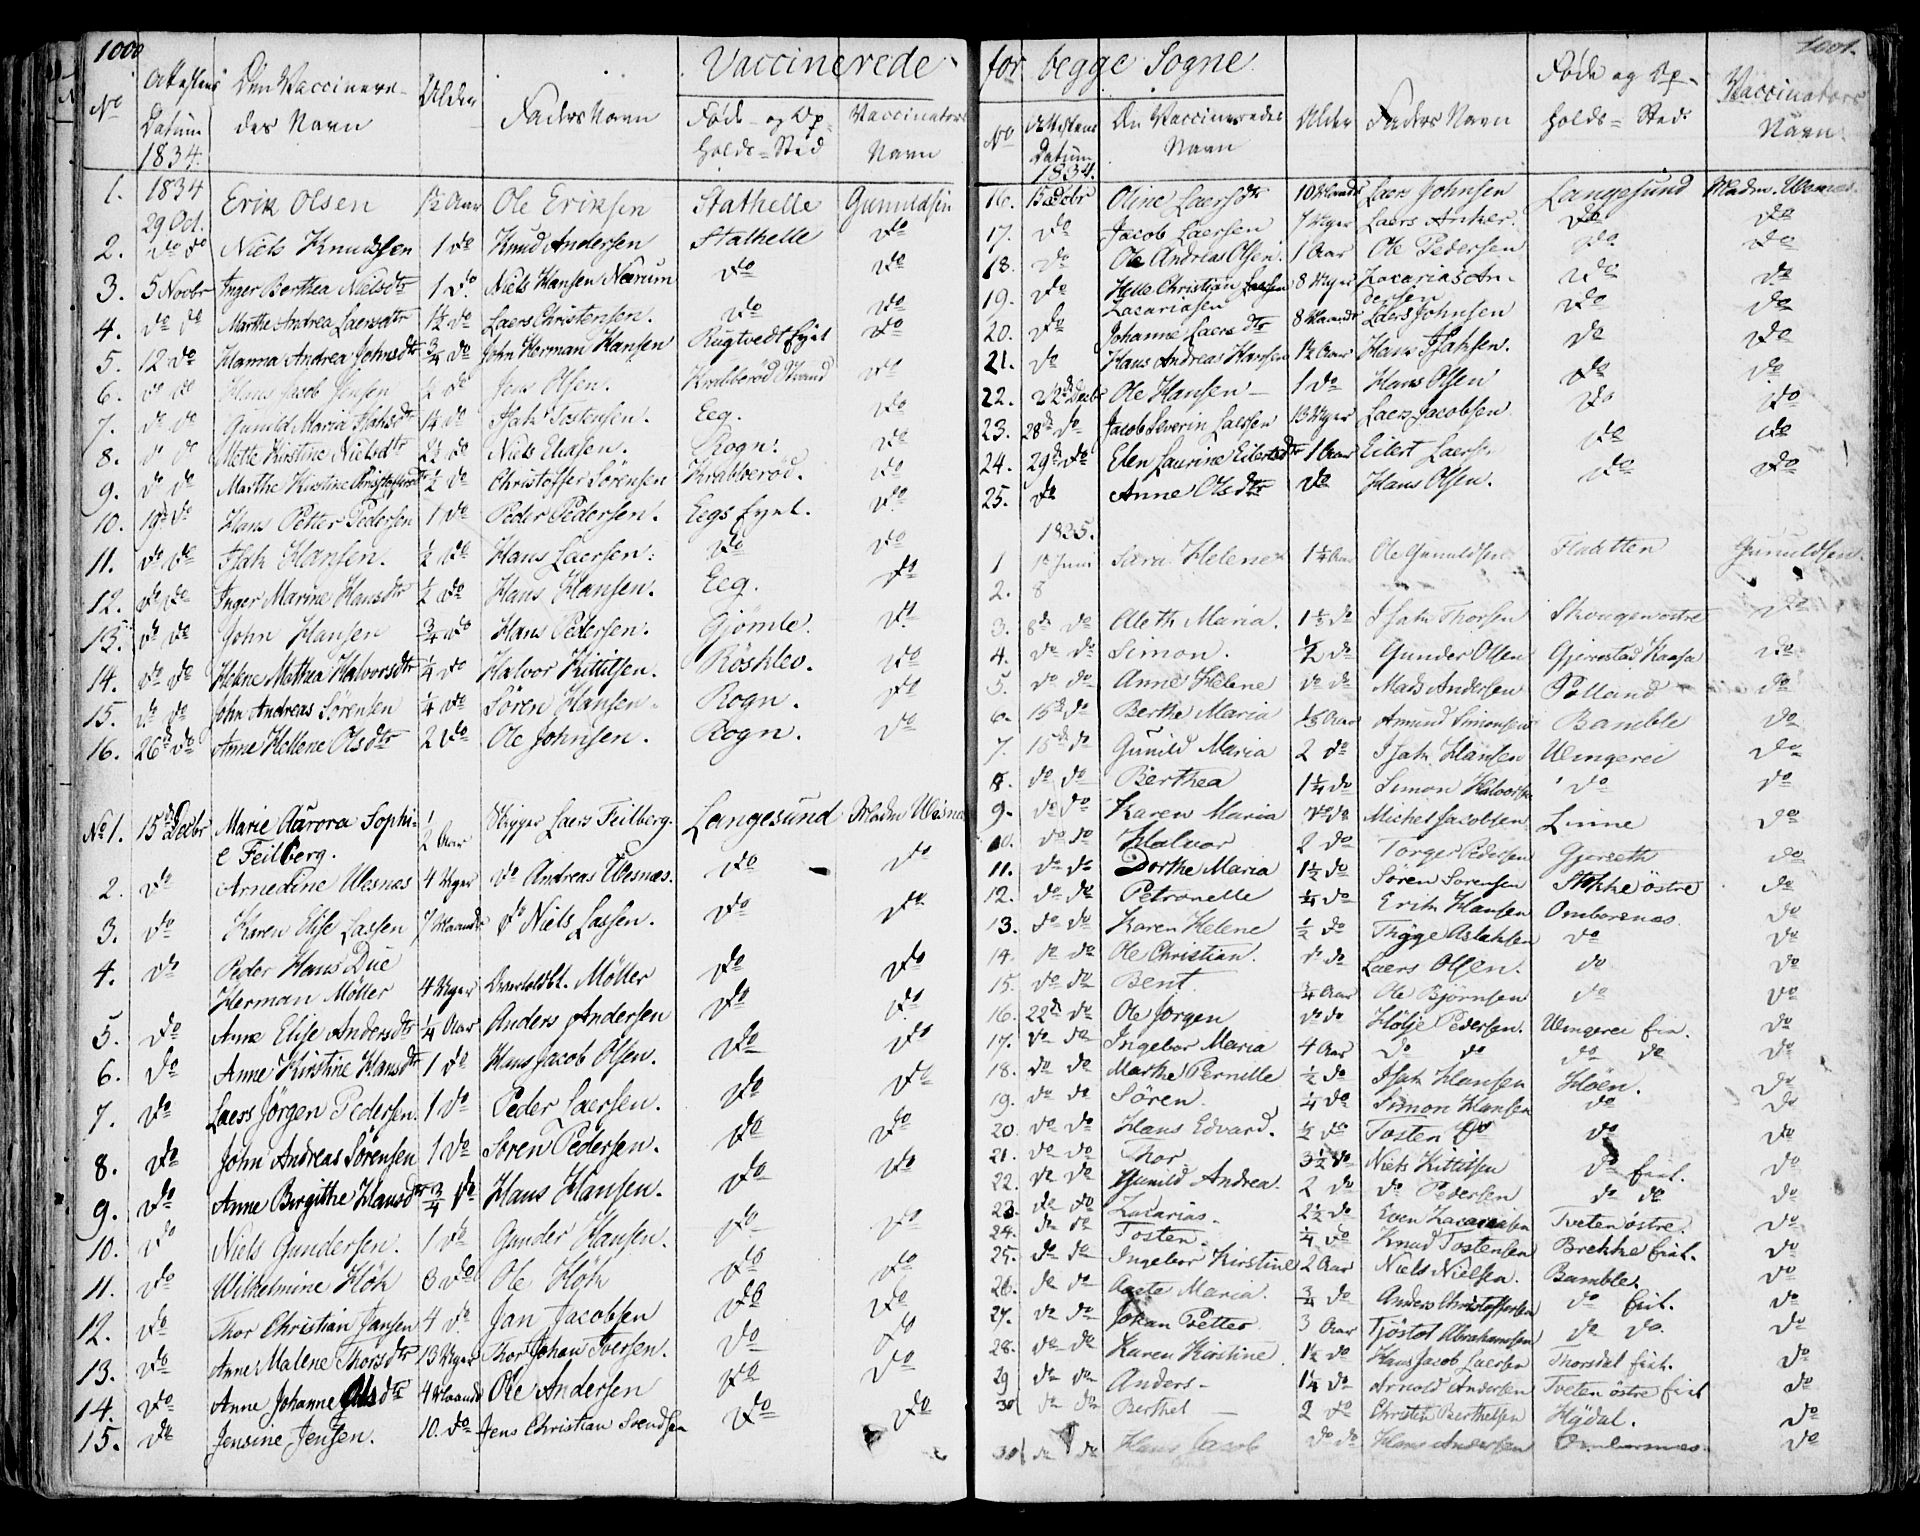 1000
Vaccinerede
No Attestens Datum 1834. Den Vaccinere- des Navn Alder Faders Navn Føde- og Op- holds-Sted Vaccinators Navn
1. 1834 29 Oct. Erik Olsen 1½ Aar Ole Eriksen Stathelle Gunuldsen
2. do do Niels Knudsen 1 do Knud Andersen Stathelle do
3. 5 Novbr Inger Berthea Nielsdtr 1 do Niels Hansen Nærum do do
4. do do Marthe Andrea Laersdtr 1½ do Laers Christensen. do do
5. 12 do Hanna Andrea Johnsdtr ¾ do John Herman Hansen Rugtvedt Eyet do
6. do do Hans Jacob Jensen ½ do Jens Olsen. Krabberød Strand do
7. do do Gunild Maria Isaksdtr 1¼ do Isak Tostensen. Eeg. do
8. do do Mette Kirstine Nielsdtr 2½ do Niels Eliasen. Rogn. do
9. do do Marthe Kirstine Christoffersdtr ½ do Christoffer Sörensen Krabberød. do
10. 19de do Hans Petter Pedersen 1 do Peder Pedersen. Eegs Eyet. do
11. do do Isak Hansen. ½ do Hans Laersen. do do
12. do do Inger Marine Hansdtr ½ do Hans Hansen. Eeg. do
13. do do John Hansen ¾ do Hans Pedersen. Gjömle. do
14. do do Helene Mathea Halvorsdtr ¼ do Halvor Kittilsen. Röskley. do
15. do do John Andreas Sörensen ¼ do Sören Hansen. Rogn. do
16. 26de do Anne Hellene Olsdtr 2 do Ole Johnsen. Rogn. do
No 1. 15de Decbr Marie Aurora Sophi- e Feilberg. ½ Aar Skipper Laers Feilberg. Langesund Madm Wesnes
2. do Arnedine Wesnes 4 Uger do Andreas Wesnes. do do
3. do Karen Elise Lassen 7 Maaneder do Niels Lassen. do do
4. do Peder Hans Due Herman Möller 4 Uger Möller do do
5. do Anne Elise Andersdtr ¼ Aar Anders Andersen do do
6. do Anne Kirstine Hansdtr 1 do Hans Jacob Olsen. do do
7. do Laers Jörgen Pedersen. 1 do Peder Laersen. do do
8. do John Andreas Sörensen 1 do Sören Pedersen. do do
9. do Anne Birgithe Hansdtr ¾ do Hans Hansen. do do
10. do Niels Gundersen. 1 do Gunder Hansen. do do
11. do Wilhelmine Hök 3 do Ole Hök do do
12. do Thor Christian Jansen 4 do Jan Jacobsen do do
13. do Anne Malene Thorsdtr 13 Uger Thor Johan Iversen. do do
14. do Anne Johanne Olsdtr 4 Maaneder Ole Andersen do do
15. do Jensine Jensen. 10. do Jens Christian Svendsen do do
1001.
for begge Sogne.
No Attestens Datum 1834. De Vaccineredes Navn Alder Faders Navn Føde og Op- holds-Sted Vaccinators Navn
16. 15 Decbr Oline Laersdtr 10 Maaneder Laers Johnsen Langesund Madm. Wesnes.
17. do Jacob Laersen 7 Uger Laers Anker. do do
18. do Ole Andreas Olsen. 1 Aar Ole Pedersen do do
19. do Helle Christian Zacariasen 8 Uger Zacarias An- dersen do do
20. do Johanne Laersdtr 8 Maaneder Laers Johnsen do do
21. do Hans Andreas Hansen 1½ Aar Hans Isaksen. do do
22. 22de Decbr Ole Hansen 1 do Hans Olsen do do
23. 28de do Jacob Severin Laersen 13 Uger Laers Jacobsen do do
24. 29de do Elen Laurine Eilertsdtr 1 Aar Eilert Laers. do do
25. do Anne Olsdtr do Hans Olsen. do do
1835.
1 1 Juni Sara Helene 1¼ Aar Ole Gunuldsen Fladetten Gunuldsen.
2. 8
3. 8de do Aleth Maria. 1½ do Isak Thorsen Skougen östre do
4. do do Simon. ½ do Gunder Olsen Gjerrestad Kaasa do
5. do do Anne Helene do do Mads Andersen Palland do
6. 15de do Berthe Maria Aar Amund Simonsen Bamble do
7. 15de do Gunild Maria 2 do Isak Hansen Wingerei do
8. do do Berthea 1¼ do Simon Halvorsen do do
9. do do Karen Maria do do Michel Jacobsen Linne do
10. do do Halvor 2 do Torger Pedersen Gjerseth do
11. do do Dorthe Maria 1½ do Sören Sorensen Stokke östre do
12. do do Petronelle ¼ do Erik Hansen Omborsnes do
13. do do Karen Helene ½ do Thyge Aslaksen do do
14. do do Ole Christian. do do Laers Olsen. do do
15. do do Bent. ¾ Aar Ole Björnsen do do
16. 22de do Ole Jörgen do do Hölje Pedersen. Wingerei Eie. do
17. do do Ingebor Maria 4 Aar do do do do do
18. do do Marthe Pernille ½ do Isak Hansen Höen. do
19. do do Sören. ¼ do Simon Hansen do do
20 do do Hans Edvard. ½ do Tosten do do do
21. do do Thor 3½ do Niels Kittilsen do Eiet. do
22. do do Gunild Andrea. 2 do do Pedersen do do do
23. do do Zacarias. 2½ do Even Zacariasen Tveten östre. do
24. do do Tosten. ¼ do Knud Tostensen Brekke Eiet. do
25. do do Ingebor Kirstine 2 Aar Niels Nielsen. Bamble. do
26. do do Aaste Maria. ¾ do Anders Christoffersen do Eiet. do
27. do do Johan Petter 3 Aar Tjöstol Abrahamsen do do. do
28. do do Karen Kirstine 1½ do Hans Jacob Laersen Thorsdal Eiet. do
29 do do Anders 1¼ do Arnold Andersen Tveten östre Eiet do
30 do do Berthel 2 do Christen Berthelsen Hydal. do
30 do do Hans Jacob do do Hans Andersen Omborsnes do